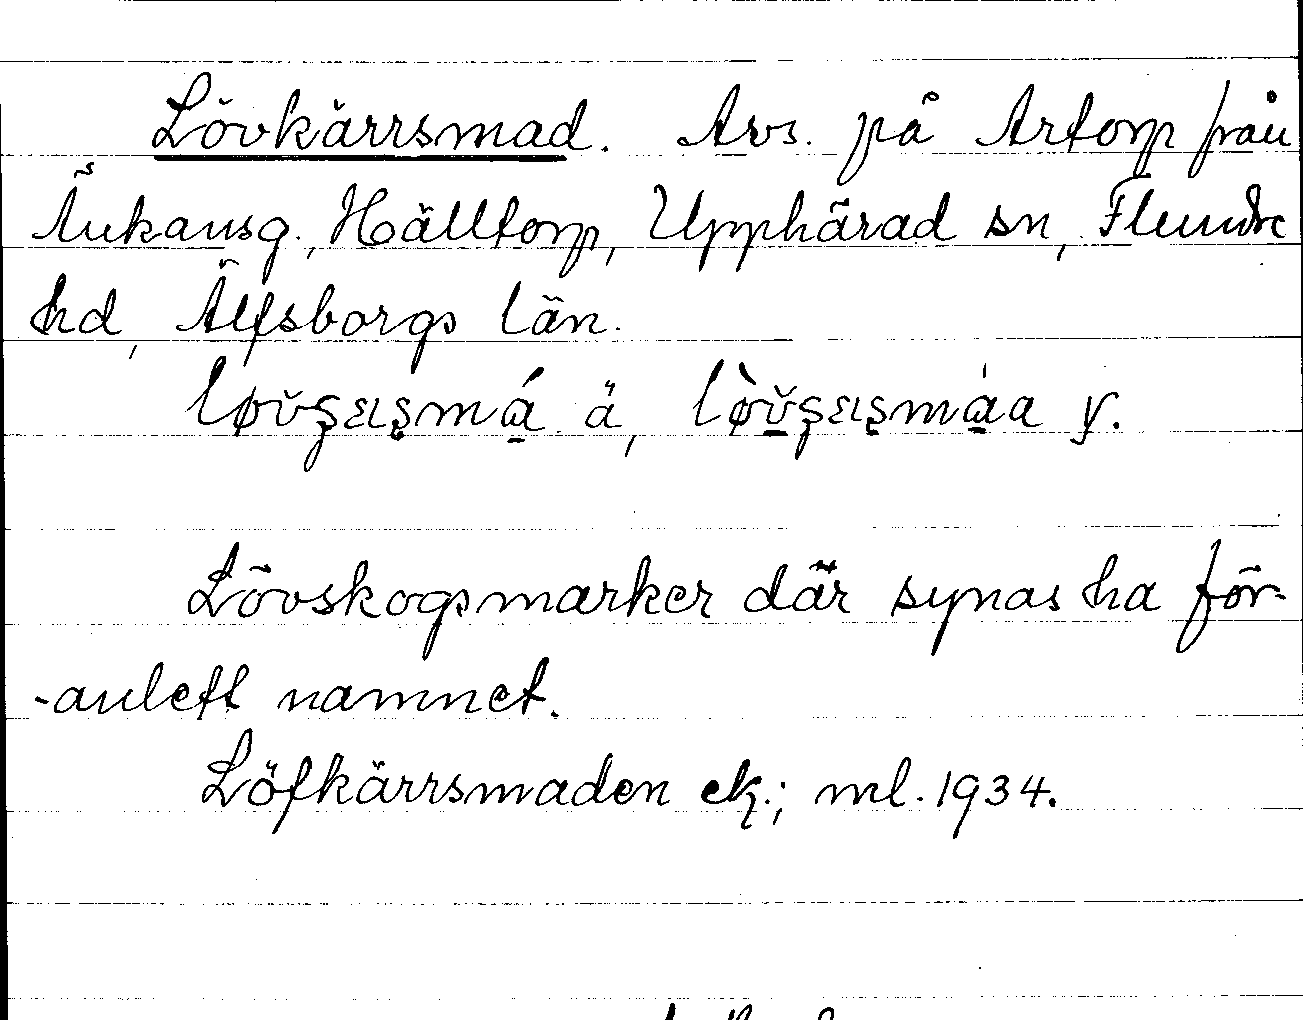 Lövkärrsmad. Avs. på Artorp från
Änkansg., Hälltorp, Upphärad sn, Flundre
hd, Älfsborgs län.
løv̆ʂɛɩʂmá̱ ä, lø̀v̱̆ʂɛɩʂmá̱a y.
Lövskogsmarker där synas ha för-
-anlett namnet.
Löfkärrsmaden ek.; ml. 1934.